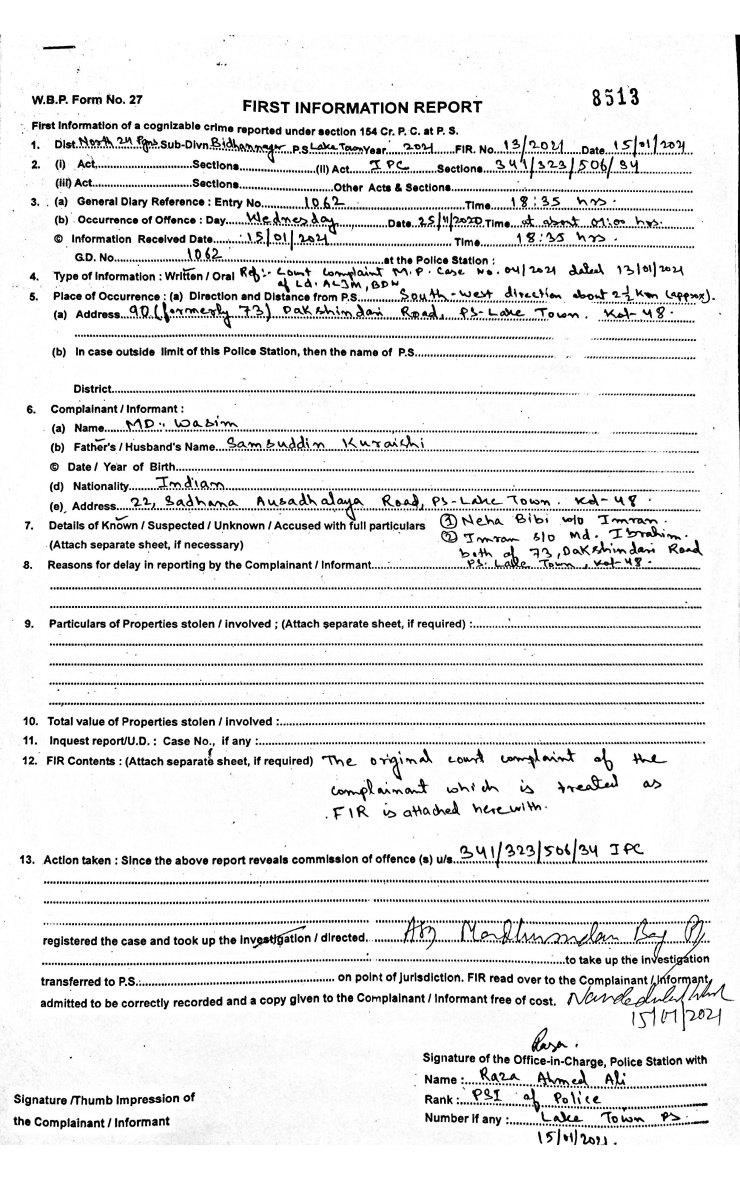 W.B.P. Form No. 27
8513
FIRST INFORMATION REPORT
First Information of a cognizable crime reported under section 154 Cr. P. C. at P. S.
1. Dist. North 24 Pgns Sub-Divn Bidhannagar P.S Lake Town Year. 2021 FIR. No. 13/2021 Date 15/01/2021
2. (i) Act Sections (ii) Act IPC Sections 341/323/506/34
(iii) Act Sections Other Acts & Sections
3. (a) General Diary Reference : Entry No. 1062 Time 18:35 hrs
(b) Occurrence of Offence : Day Wednesday Date 25/11/2020 Time at about 01:00 hrs.
© Information Received Date 15/01/2021 Time 18:35 hrs.
G.D. No. 1062 at the Police Station :
4. Type of Information : Written / Oral Ref:- Court Complaint M.P. Case No. 04/2021 dated 13/01/2021
of Ld. ACJM, BDN
5. Place of Occurrence : (a) Direction and Distance from P.S. South-west direction about 2½ Km (approx).
(a) Address 90 (formerly 73) Dakshindari Road, PS-Lake Town. Kol-48.
(b) In case outside limit of this Police Station, then the name of P.S
District
6. Complainant / Informant :
(a) Name MD. Wasim
(b) Father's / Husband's Name Samsuddin Kuraichi
© Date / Year of Birth
(d) Nationality Indian
(e) Address 22, Sadhana Ausadhalaya Road, PS-Lake Town. Kol-48.
7. Details of Known / Suspected / Unknown / Accused with full particulars ① Neha Bibi w/o Imran.
(Attach separate sheet, if necessary) ② Imran s/o Md. Ibrahim.
both of 73, Dakshindari Road
8. Reasons for delay in reporting by the Complainant / Informant PS. Lake Town, Kol-48.
9. Particulars of Properties stolen / involved ; (Attach separate sheet, if required) :
10. Total value of Properties stolen / involved :
11. Inquest report/U.D. : Case No., if any :
12. FIR Contents : (Attach separate sheet, if required) The original court complaint of the
complainant which is treated as
FIR is attached herewith.
13. Action taken : Since the above report reveals commission of offence (s) u/s. 341/323/506/34 IPC
registered the case and took up the investigation / directed. Bag
to take up the investigation
transferred to P.S.: on point of jurisdiction. FIR read over to the Complainant / Informant,
admitted to be correctly recorded and a copy given to the Complainant / Informant free of cost.
15/01/2021
Raza.
Signature of the Office-in-Charge, Police Station with
Name : Raza Ahmed Ali
Signature /Thumb Impression of
Rank : PSI of Police
the Complainant / Informant
Number if any : Lake Town PS
15/01/2021.